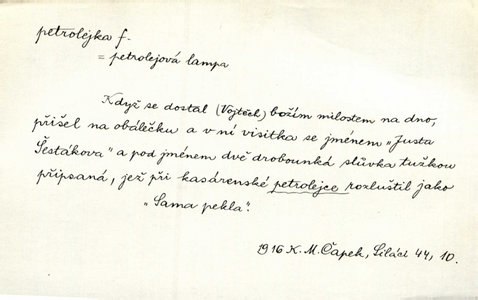 petrolejka f.
= petrolejová lampa
Když se dostal (Vojtěch) božím milostem na dno,
přišel na obálečku a v ní visitka se jménem „Justa
Šestákova" a pod jménem dvě drobounká slůvka tužkou
připsaná, jež při kasárenské petrolejce rozluštil jako
„Sama pekla".
1916 K. M. Čapek, Siláci 44, 10.